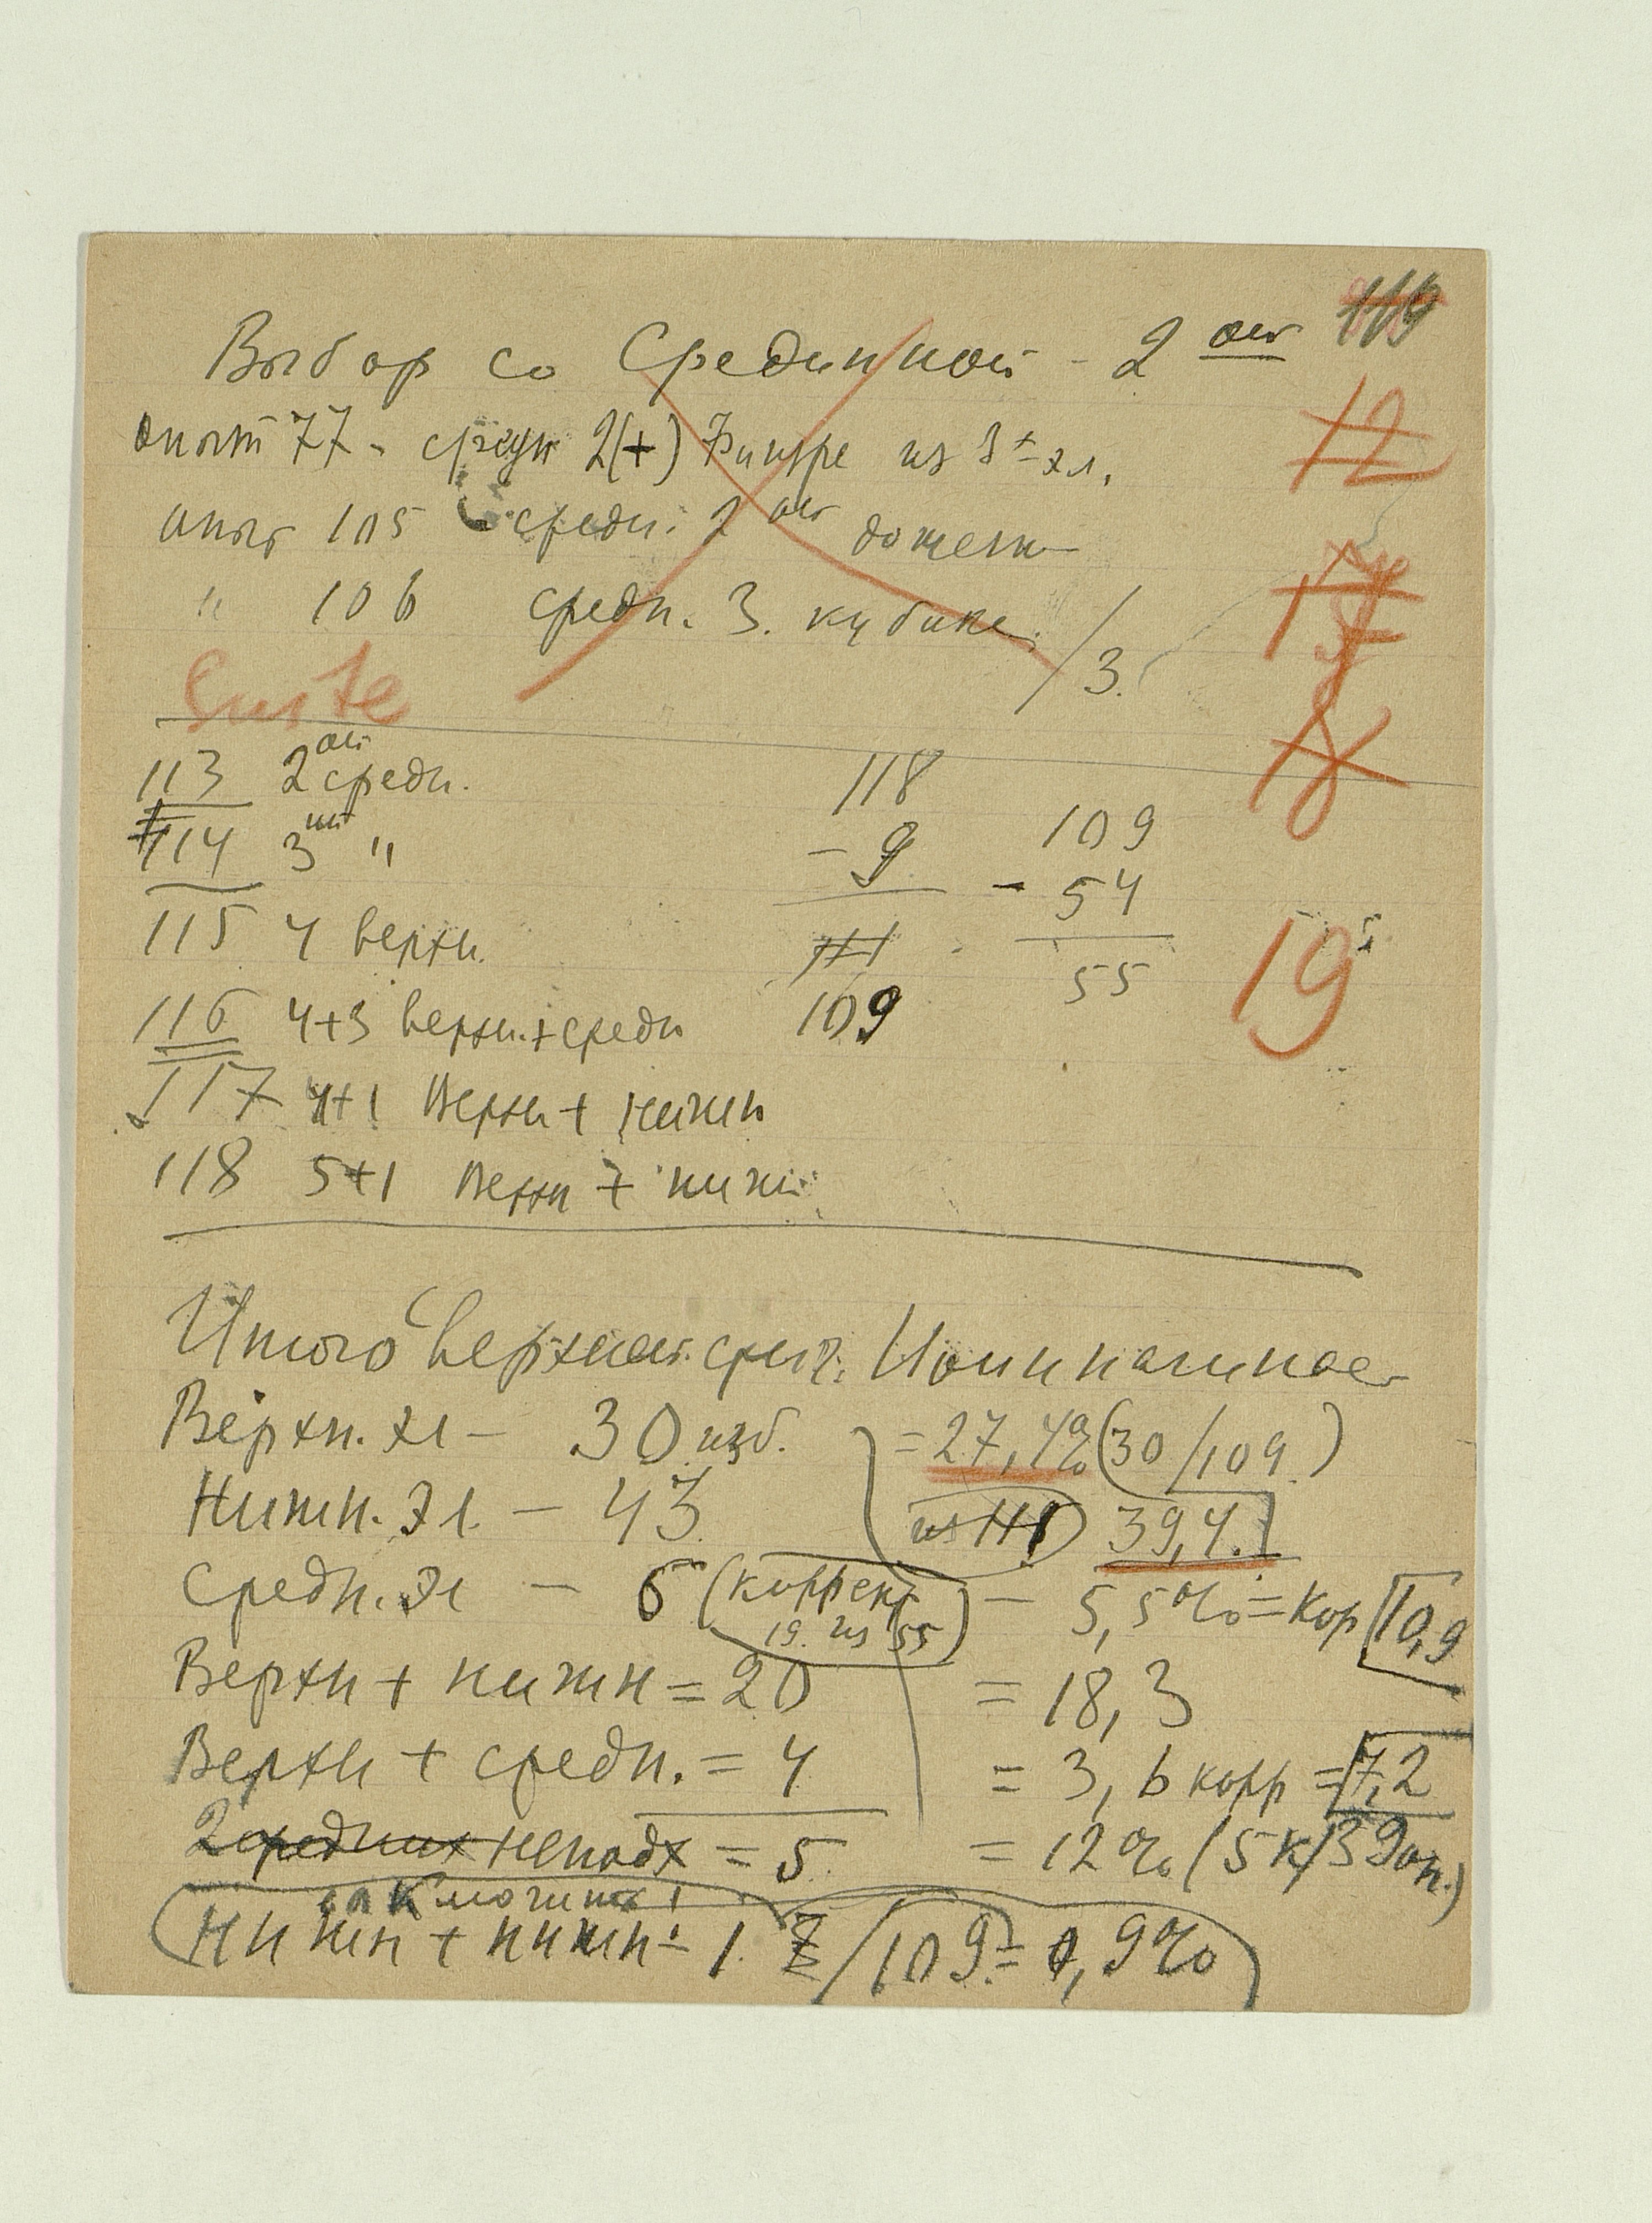 119
Выбор со Срединной - 2 ой
12
опыт 77 - средн 2(+) Фигуре из 3х эл.
опыт 105 средн. 2 ой
17
" 106 средн. 3. кубике.
/3.
Suite
18
113 2ой средн.
114 3ий "
115 4 верхн.
116 4+3 верхн.+средн
117 4+1 Верхн + нижн
118 5+1 Верхн + нижн
118
- 9
111
109
109
- 54
55
19
Итого
Верхн. эл - 30 изб. = 27,4% (30/109.)
Нижн. эл. - 43 из 118 39,4.
Средн. эл - 6 (коррект 19. из 55) - 5,5% = кор 10,9
Верхн + нижн = 20 = 18,3
Верхн + средн. = 4 = 3,6 корр = 7,2
2 средних неподх = 5. = 12% (5 к/39 оп.)
Нижн + нижн = 1. /109 = 0,9%